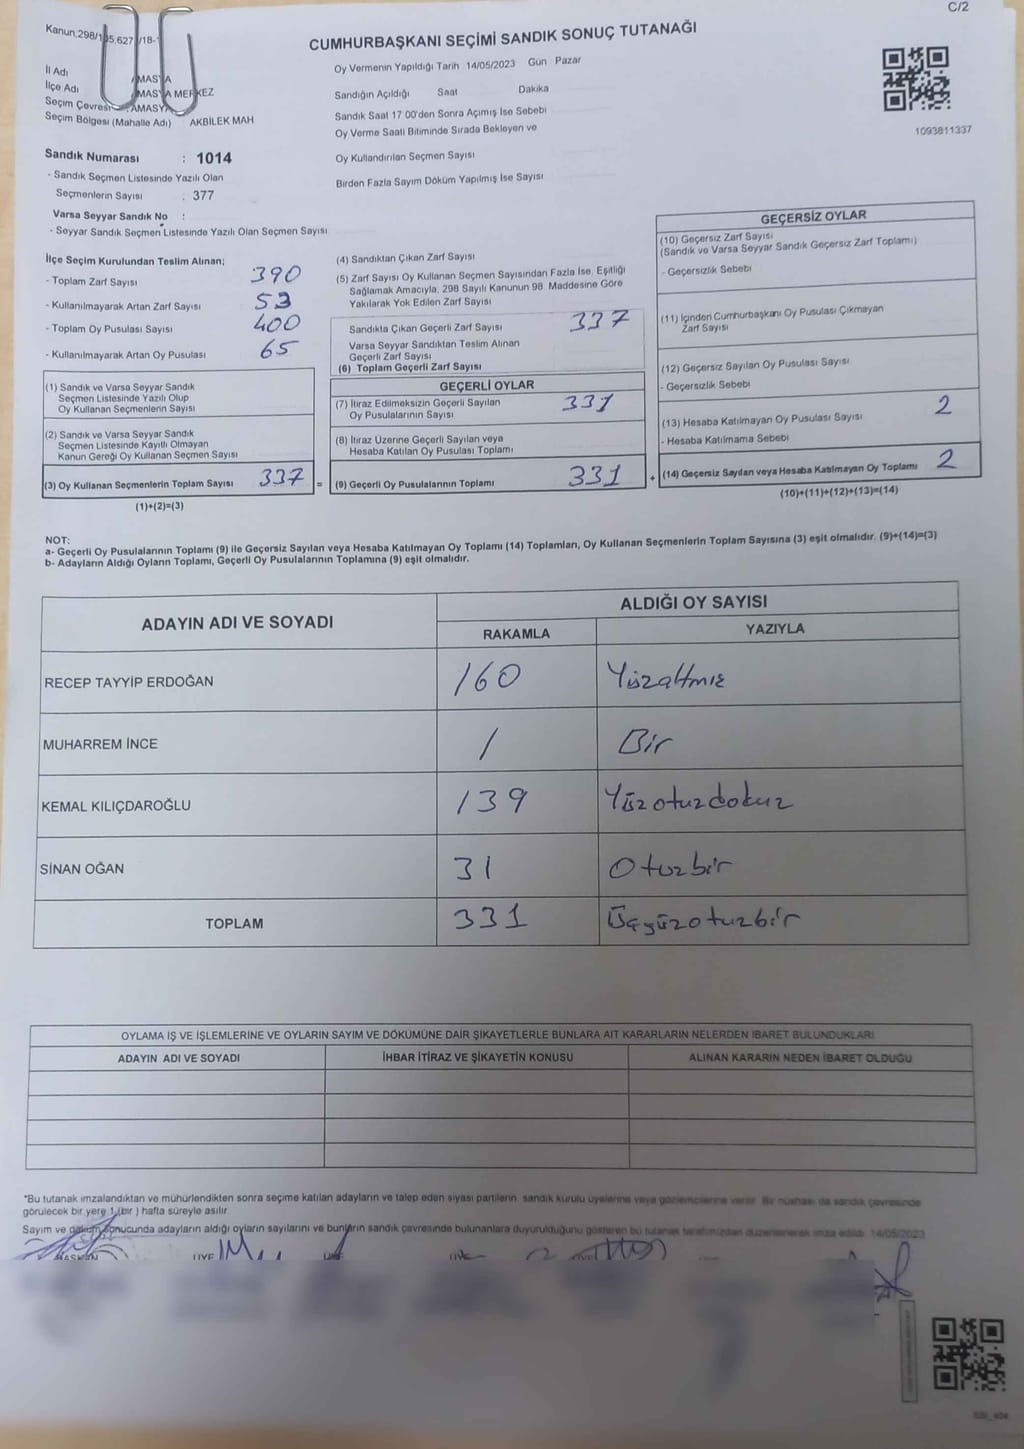 C/2
Kanun,298/1 /18-
CUMHURBAŞKANI SEÇİMİ SANDIK SONUÇ TUTANAĞI
Oy Vermenin Yapıldığı Tarih 14/05/2023 Gün Pazar
İl Adı AMASYA
İlçe Adı AMASYA MERKEZ
Seçim Çevresi : AMASYA
Seçim Bölgesi (Mahalle Adı) AKBİLEK MAH
Sandığın Açıldığı Saat Dakika
Sandık Saat 17 00'den Sonra Açımış İse Sebebi
Oy Verme Saati Bitiminde Sırada Bekleyen ve
Oy Kullandırılan Seçmen Sayısı
Birden Fazla Sayım Döküm Yapılmış İse Sayısı
1093811337
Sandık Numarası : 1014
- Sandık Seçmen Listesinde Yazılı Olan
Seçmenlerin Sayısı : 377
Varsa Seyyar Sandık No :
- Seyyar Sandık Seçmen Listesinde Yazılı Olan Seçmen Sayısı
İlçe Seçim Kurulundan Teslim Alınan;
- Toplam Zarf Sayısı 390
- Kullanılmayarak Artan Zarf Sayısı 53
- Toplam Oy Pusulası Sayısı 400
- Kullanılmayarak Artan Oy Pusulası 65
(1) Sandık ve Varsa Seyyar Sandık
Seçmen Listesinde Yazılı Olup
Oy Kullanan Seçmenlerin Sayısı
(2) Sandık ve Varsa Seyyar Sandık
Seçmen Listesinde Kayıtlı Olmayan
Kanun Gereği Oy Kullanan Seçmen Sayısı
(3) Oy Kullanan Seçmenlerin Toplam Sayısı 337 =
(1)+(2)=(3)
(4) Sandıktan Çıkan Zarf Sayısı
(5) Zarf Sayısı Oy Kullanan Seçmen Sayısından Fazla İse, Eşitliği
Sağlamak Amacıyla, 298 Sayılı Kanunun 98. Maddesine Göre
Yakılarak Yok Edilen Zarf Sayısı
Sandıkta Çıkan Geçerli Zarf Sayısı 337
Varsa Seyyar Sandıktan Teslim Alınan
Geçerli Zarf Sayısı
(6) Toplam Geçerli Zarf Sayısı
GEÇERLİ OYLAR
(7) İtiraz Edilmeksizin Geçerli Sayılan
Oy Pusulalarının Sayısı 331
(8) İtiraz Üzerine Geçerli Sayılan veya
Hesaba Katılan Oy Pusulası Toplamı
(9) Geçerli Oy Pusulalarının Toplamı 331 +
GEÇERSİZ OYLAR
(10) Geçersiz Zarf Sayısı
(Sandık ve Varsa Seyyar Sandık Geçersiz Zarf Toplamı)
- Geçersizlik Sebebi
(11) İçinden Cumhurbaşkanı Oy Pusulası Çıkmayan
Zarf Sayısı
(12) Geçersiz Sayılan Oy Pusulası Sayısı
- Geçersizlik Sebebi
(13) Hesaba Katılmayan Oy Pusulası Sayısı 2
- Hesaba Katılmama Sebebi
(14) Geçersiz Sayılan veya Hesaba Katılmayan Oy Toplamı 2
(10)+(11)+(12)+(13)=(14)
NOT:
a- Geçerli Oy Pusulalarının Toplamı (9) ile Geçersiz Sayılan veya Hesaba Katılmayan Oy Toplamı (14) Toplamları, Oy Kullanan Seçmenlerin Toplam Sayısına (3) eşit olmalıdır. (9)+(14)=(3)
b- Adayların Aldığı Oyların Toplamı, Geçerli Oy Pusulalarının Toplamına (9) eşit olmalıdır.
ADAYIN ADI VE SOYADI ALDIĞI OY SAYISI
RAKAMLA YAZIYLA
RECEP TAYYİP ERDOĞAN 160 Yüzaltmış
MUHARREM İNCE 1 Bir
KEMAL KILIÇDAROĞLU 139 Yüzotuzdokuz
SİNAN OĞAN 31 Otuzbir
TOPLAM 331 Üçyüzotuzbir
OYLAMA İŞ VE İŞLEMLERİNE VE OYLARIN SAYIM VE DÖKÜMÜNE DAİR ŞİKAYETLERLE BUNLARA AİT KARARLARIN NELERDEN İBARET BULUNDUKLARI
ADAYIN ADI VE SOYADI İHBAR İTİRAZ VE ŞİKAYETİN KONUSU ALINAN KARARIN NEDEN İBARET OLDUĞU
*Bu tutanak imzalandıktan ve mühürlendikten sonra seçime katılan adayların ve talep eden siyasi partilerin sandık kurulu üyelerine veya gözlemcilerine verilir. Bir nüshası da sandık çevresinde
görülecek bir yere 1 (bir ) hafta süreyle asılır.
Sayım ve döküm sonucunda adayların aldığı oyların sayılarını ve bunların sandık çevresinde bulunanlara duyurulduğunu gösteren bu tutanak tarafımızdan düzenlenerek imza edildi 14/05/2023
BAŞKAN ÜYE